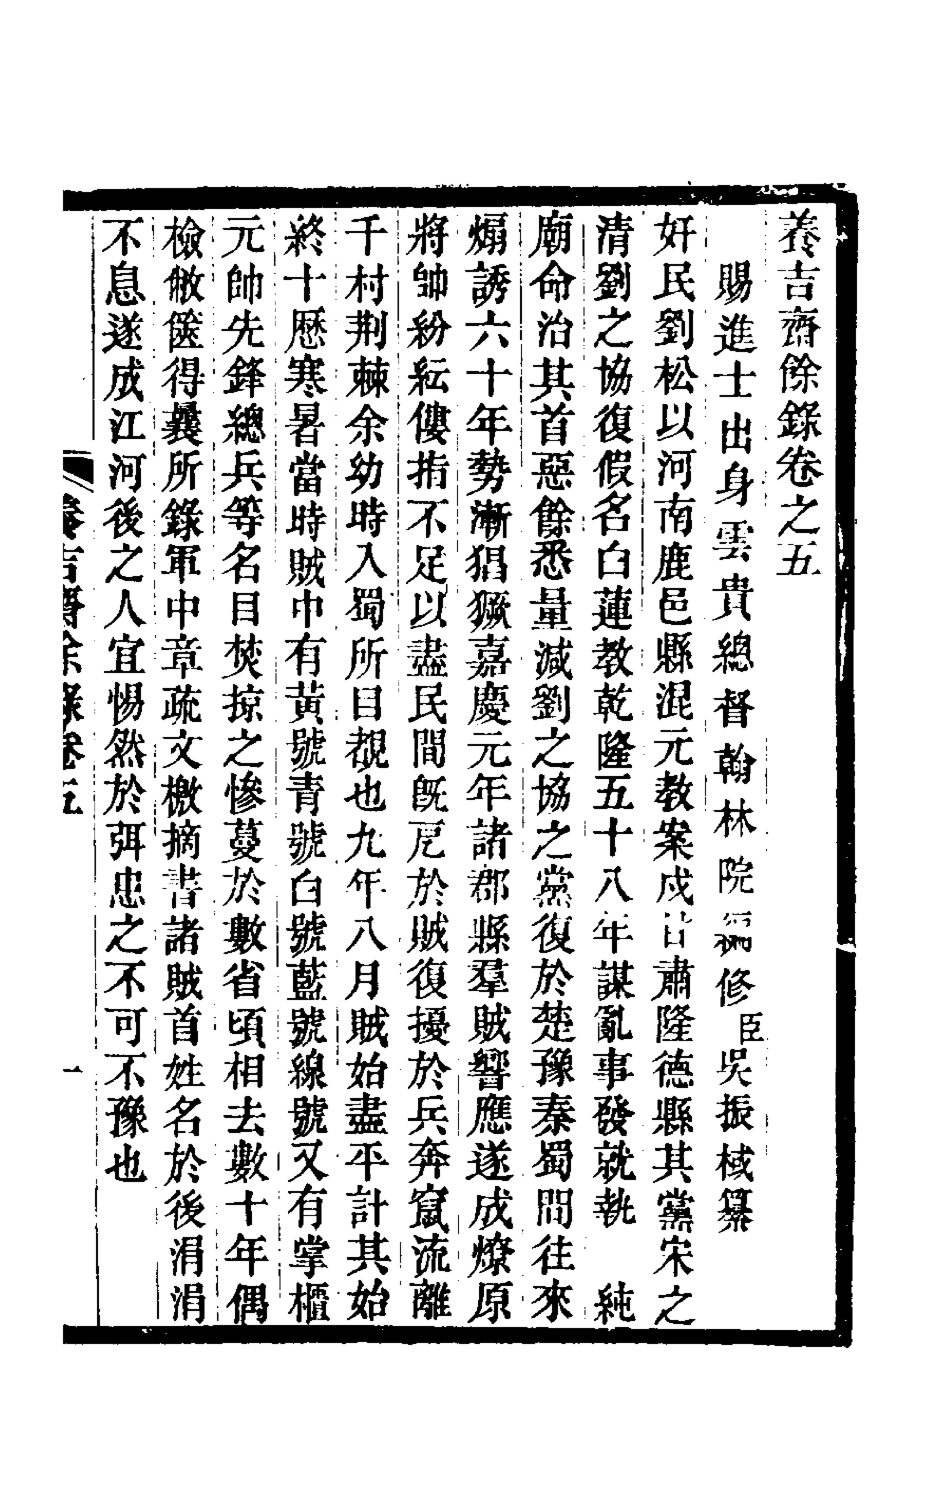 養吉齋餘錄卷之五
賜進士出身雲貴總督翰林院編修臣吳振棫纂
奸民劉松以河南鹿邑縣混元教案戍甘肅隆德縣其黨宋之
清劉之協復假名白蓮教乾隆五十八年謀亂事發就執　純
廟命治其首惡餘悉量減劉之協之黨復於楚豫秦蜀間往來
煽誘六十年勢漸猖獗嘉慶元年諸郡縣羣賊響應遂成燎原
將帥紛紜僂指不足以盡民間旣戹於賊復擾於兵奔竄流離
千村荆棘余幼時入蜀所目覩也九年八月賊始盡平計其始
終十歷寒暑當時賊中有黃號青號白號藍號線號又有掌櫃
元帥先鋒總兵等名目焚掠之慘蔓於數省頃相去數十年偶
檢敝篋得曩所錄軍中章疏文檄摘書諸賊首姓名於後涓涓
不息遂成江河後之人宜惕然於弭患之不可不豫也
養吉齋餘錄卷五
一